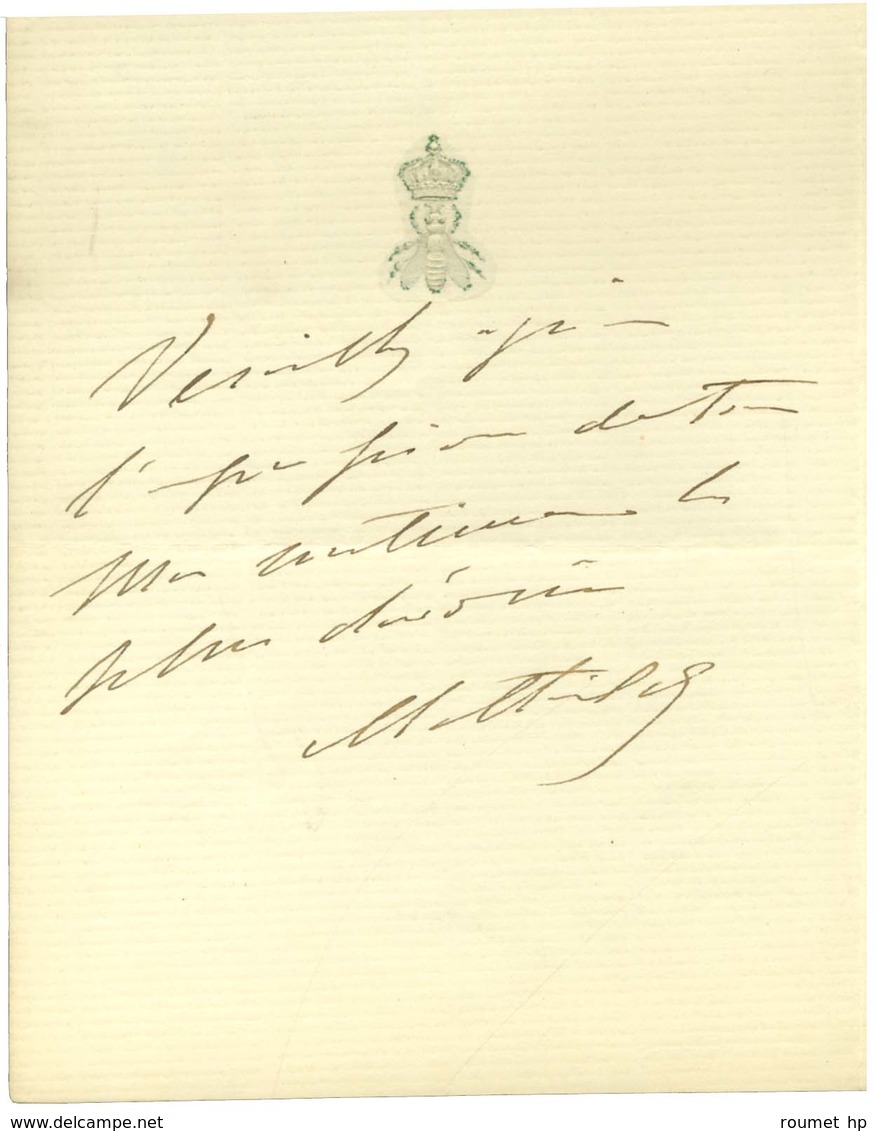 Veuillez agréer
l'expression de tous
mes sentiments les
plus dévoués
Mathilde
roumet hp